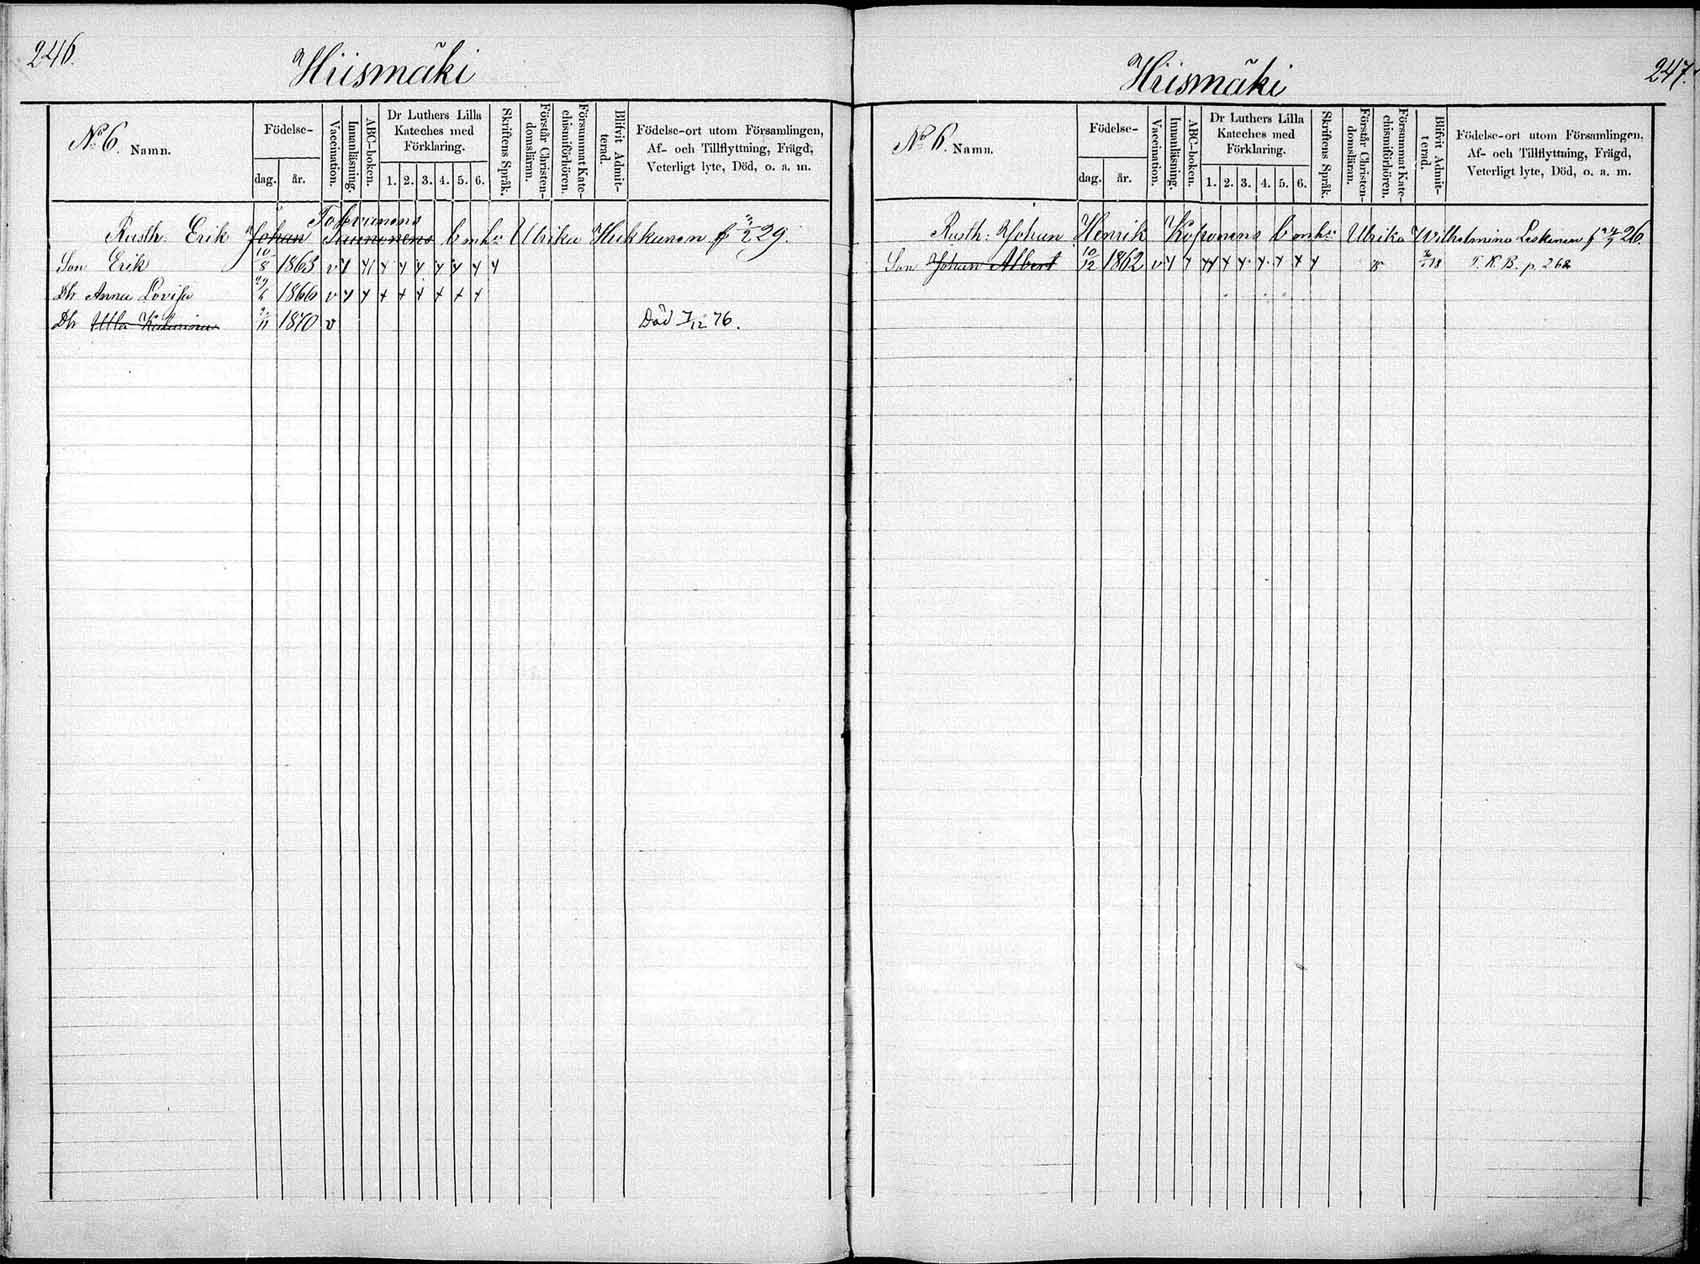 246.
Hiismäki
No 6. Namn.
Födelse-
dag. år.
Vaccination.
Innanläsning.
ABC-boken.
Dr Luthers Lilla
Kateches med
Förklaring.
1. 2. 3. 4. 5. 6.
Skriftens Språk.
Förstår Christen-
domsläran.
Försummat Kate-
chismiförhören.
Blifvit Admit-
terad.
Födelse-ort utom Församlingen,
Af- och Tillflyttning, Frägd,
Veterligt lyte, Död, o. a. m.
Rusth. Erik Johan Ulrika f 29.
Son Erik 10/8 1863 v
Dr Anna Lovisa 1866 v
Dr Ulla 1870 v Död 7/12 76.
Hiismäki
247.
No 6. Namn.
Födelse-
dag. år.
Vaccination.
Innanläsning.
ABC-boken.
Dr Luthers Lilla
Kateches med
Förklaring.
1. 2. 3. 4. 5. 6.
Skriftens Språk.
Förstår Christen-
domsläran.
Försummat Kate-
chismiförhören.
Blifvit Admit-
terad.
Födelse-ort utom Församlingen,
Af- och Tillflyttning, Frägd,
Veterligt lyte, Död, o. a. m.
Rusth: Johan Henrik Koponens Ulrika Wilhelmina Leskinen f 26.
Son Johan Albert 10/12 1862 v p. 262